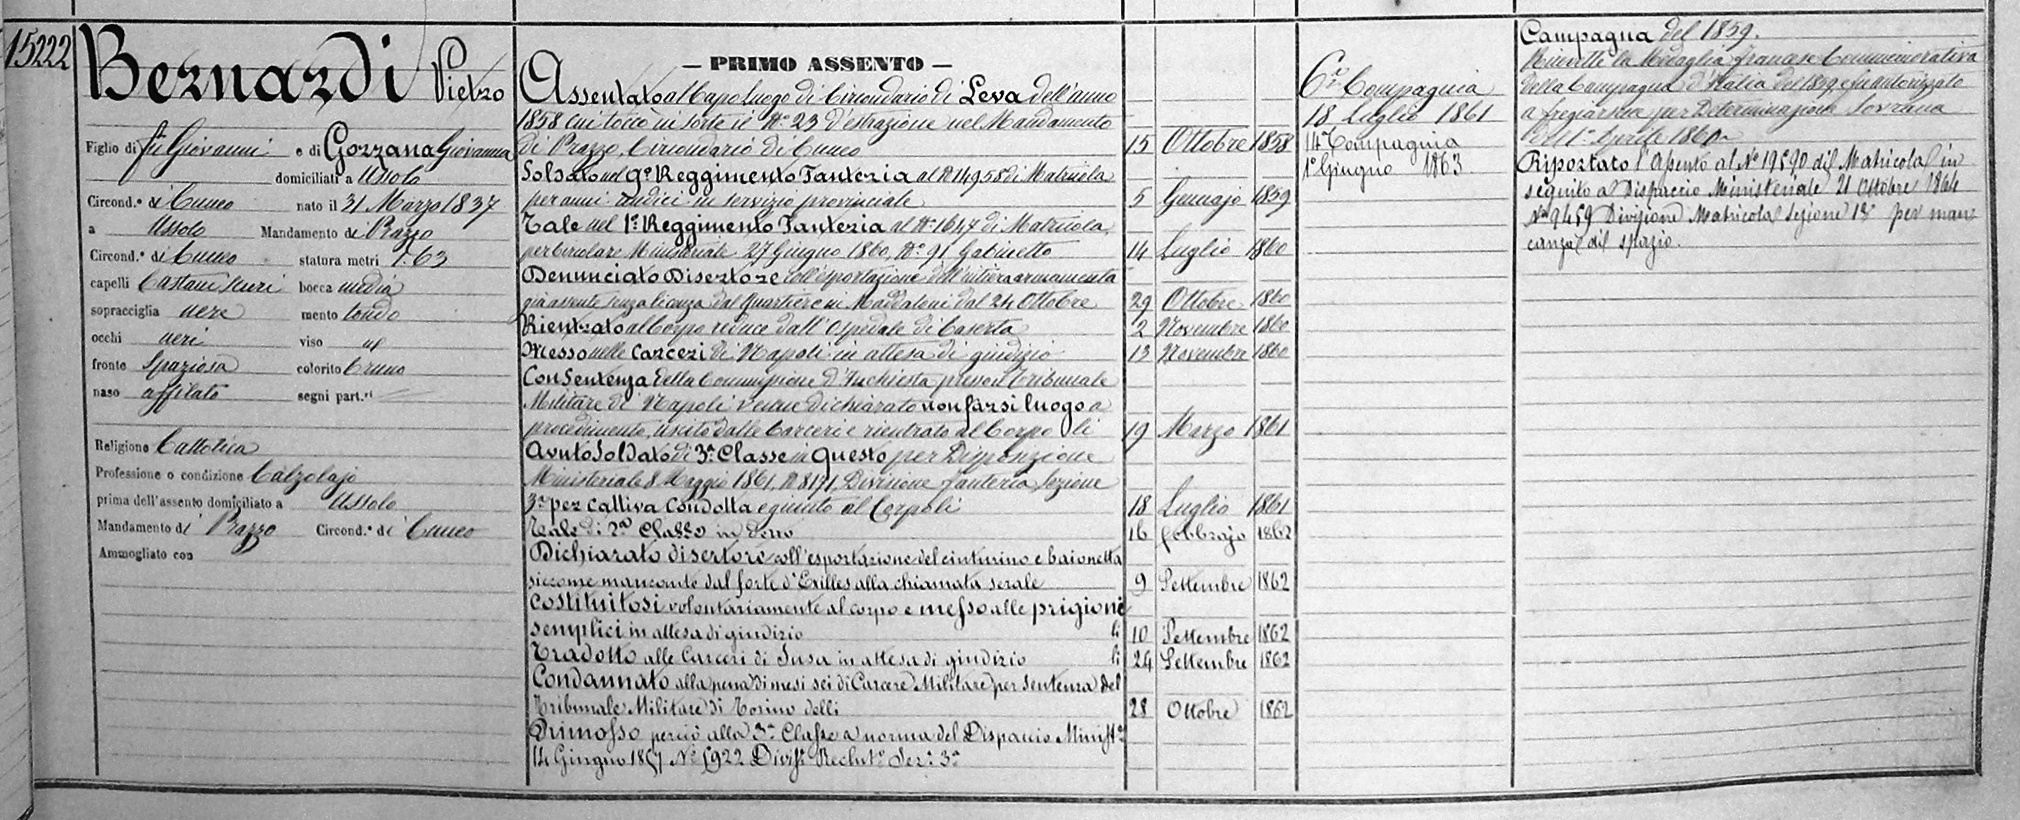 15222
Bernardi Pietro
Figlio di fu Giovanni e di Gozzana Giovanna
domiciliati a Ussolo
Circond.º di Cuneo nato il 31 Marzo 1837
a Ussolo Mandamento di Prazzo
Circond.º di Cuneo statura metri 1.63
capelli Castani scuri bocca media
sopracciglia nere mento tondo
occhi neri viso
fronte spaziosa colorito bruno
naso affilato segni part.ri
Religione Cattolica
Professione o condizione Calzolajo
prima dell'assento domiciliato a Ussolo
Mandamento di Prazzo Circond.º di Cuneo
Ammogliato con
— PRIMO ASSENTO —
Assentato al Capo luogo di Circondario di Leva dell'anno
1858 cui toccò in sorte il Nº 23 d'estrazione nel Mandamento
di Prazzo, Circondario di Cuneo 15 Ottobre 1858
Soldato nel 9º Reggimento Fanteria al Nº 14958 di Matricola
per anni undici in servizio provinciale 5 Gennajo 1859
Tale nel 1º Reggimento Fanteria al Nº 1647 di Matricola,
per Circolare Ministeriale 27 Giugno 1860, Nº 91 Gabinetto 14 Luglio 1860
Denunciato Disertore coll'esportazione dell'intiero armamento
già assente senza licenza dal Quartiere in Maddaloni dal 24 Ottobre 29 Ottobre 1860
Rientrato al Corpo reduce dall'Ospedale di Caserta 2 Novembre 1860
Messo nelle Carceri di Napoli in attesa di giudizio 13 Novembre 1860
Con Sentenza della Commissione d'Inchiesta presso il Tribunale
Militare di Napoli venne dichiarato non farsi luogo a
procedimento, uscito dalle Carceri e rientrato al Corpo li 19 Marzo 1861
Avuto Soldato di 3ª Classe in Questo per Disposizione
Ministeriale 8 Maggio 1861, Nº 8171, Divisione fanteria, Sezione
3ª per cattiva condotta e giunto al Corpo li 18 Luglio 1861
Tale di 2ª Classe in detto 16 febbrajo 1862
Dichiarato disertore coll'esportazione del cinturino e baionetta
siccome mancante dal forte d'Exilles alla chiamata serale 9 Settembre 1862
Costituitosi volontariamente al corpo e messo alle prigioni
semplici in attesa di giudizio li 10 Settembre 1862
Tradotto alle Carceri di Susa in attesa di giudizio li 24 Settembre 1862
Condannato alla pena di mesi sei di Carcere Militare per sentenza del
Tribunale Militare di Torino delli 28 Ottobre 1862
Rimosso perciò alla 3ª Classe a norma del Dispaccio Minist.º
14 Giugno 1857 Nº 5922 Divis.e Reclut.º Sez.e 3ª
6ª Compagnia
18 Luglio 1861
14ª Compagnia
1º Giugno 1863
Campagna del 1859.
Ricevette la Medaglia francese Commemorativa
della Campagna d'Italia del 1859 e fu autorizzato
a fregiarsene per Determinazione Sovrana
dell'1º Aprile 1860
Riportato l'Assento al Nº 19590 di Matricola in
seguito al Dispaccio Ministeriale 21 Ottobre 1864
Nº 9459 Divisione Matricola Sezione 1ª per man
canza di spazio.